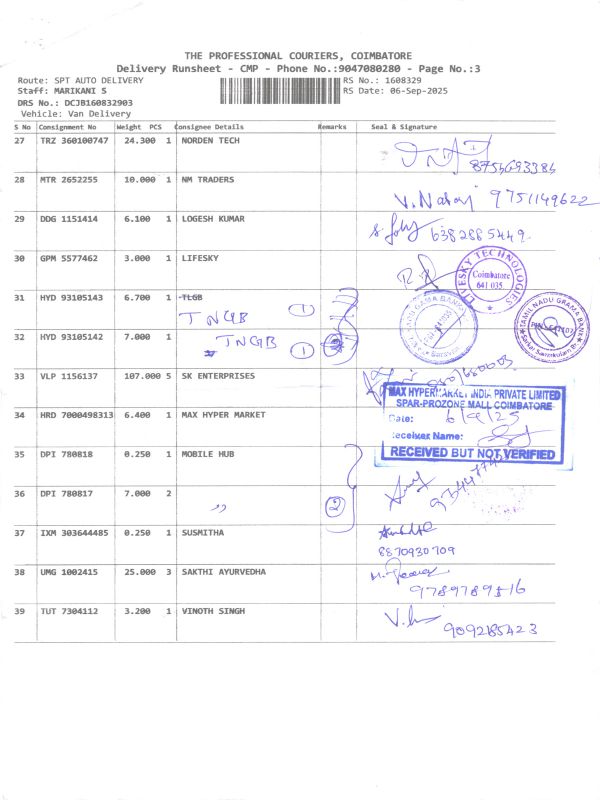 THE PROFESSIONAL COURIERS, COIMBATORE
Delivery Runsheet - CMP - Phone No.:9047080280 - Page No.:3
Route: SPT AUTO DELIVERY RS No.: 1608329
Staff: MARIKANI S RS Date: 06-Sep-2025
DRS No.: DCJB160832903
Vehicle: Van Delivery
S No Consignment No Weight PCS Consignee Details Remarks Seal & Signature
27 TRZ 360100747 24.300 1 NORDEN TECH
28 MTR 2652255 10.000 1 NM TRADERS
V. 9751149622
29 DDG 1151414 6.100 1 LOGESH KUMAR
6382885449
30 GPM 5577462 3.000 1 LIFESKY
LIFESKY TECHNOLOGIES
Coimbatore
641 035.
31 HYD 93105143 6.700 1 TLGB
TNGB 1
TAMIL NADU GRAMA BANK
32 HYD 93105142 7.000 1
TNGB 1
33 VLP 1156137 107.000 5 SK ENTERPRISES
34 HRD 7000498313 6.400 1 MAX HYPER MARKET
MAX HYPERMARKET INDIA PRIVATE LIMITED
SPAR-PROZONE MALL COIMBATORE
Date: 6/9/25
Receiver Name:
RECEIVED BUT NOT VERIFIED
35 DPI 780818 0.250 1 MOBILE HUB
36 DPI 780817 7.000 2
,, 2
37 IXM 303644485 0.250 1 SUSMITHA
8870930709
38 UMG 1002415 25.000 3 SAKTHI AYURVEDHA
39 TUT 7304112 3.200 1 VINOTH SINGH
9092185423